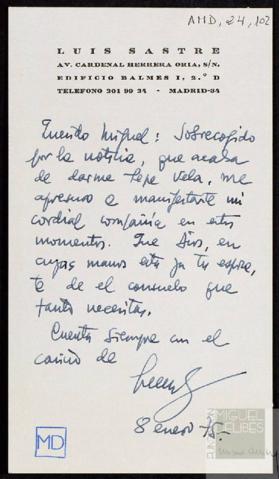 AMD, 24, 102
LUIS SASTRE
AV. CARDENAL HERRERA ORIA, S/N.
EDIFICIO BALMES I, 2.º D
TELEFONO 201 99 24 - MADRID-34
Querido Miguel: Sobrecogido
por la noticia, que acaba
de darme Pepe Vela, me
apresuro a manifestarte mi
cordial compañía en estos
momentos. Que Dios, en
cuyas manos está ya tu esposa,
te dé el consuelo que
tanto necesitas.
Cuenta siempre con el
cariño de
8 enero 75.-
MD
FUNDACIÓN
MIGUEL
DELIBES